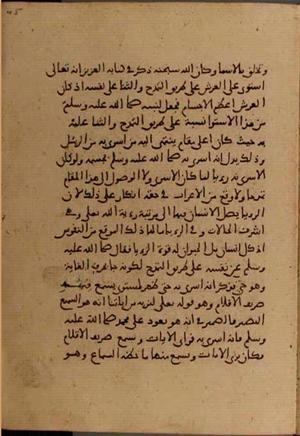 وتخلق بالاسما وكان الله سبحنه ذكر في كتابه العزيز انه تعالى
استوى على العرش على طريق التمدح والثنا على نفسه اذ كان
العرش اعظم الاجسام فجعل لنبيه صلى الله عليه وسلم
من هذا الاستوا نسبة على طريق التمدح والثنا عليه
به حيث كان اعلى مقام ينتهى اليه من اسرى به من الرسل
وذلك يدل انه اسرى به صلى الله عليه وسلم بجسمه ولو كان
الاسرى به رويا لما كان الاسرى ولا الوصول الى هذا المقام
تمدحا ولا وقع من الاعراب في حقه انكار على ذلك لان
الرويا يصل الانسان فيها الى مرتبة روية الله تعلى وهي
اشرف الحالات وفي الرويا ما لها ذلك الموقع من النفوس
اذ كل انسان بل الحيوان له قوة الرويا فقال صلى الله عليه
وسلم عن نفسه على طريق التمدح لكونه جا بحرف الغاية
وهو حتى فذكر انه اسرى به حتى ظهر لمستوى يسمع فيه
صريف الاقلام وهو قوله تعلى لنريه من اياتنا انه هو السميع
البصير فالضمير في انه هو يعود على محمد صلى الله عليه
وسلم فانه اسرى به فراى الايات وسمع صريف الاقلام
فكان يرى الايات ويسمع منها ما حظه السماع وهو